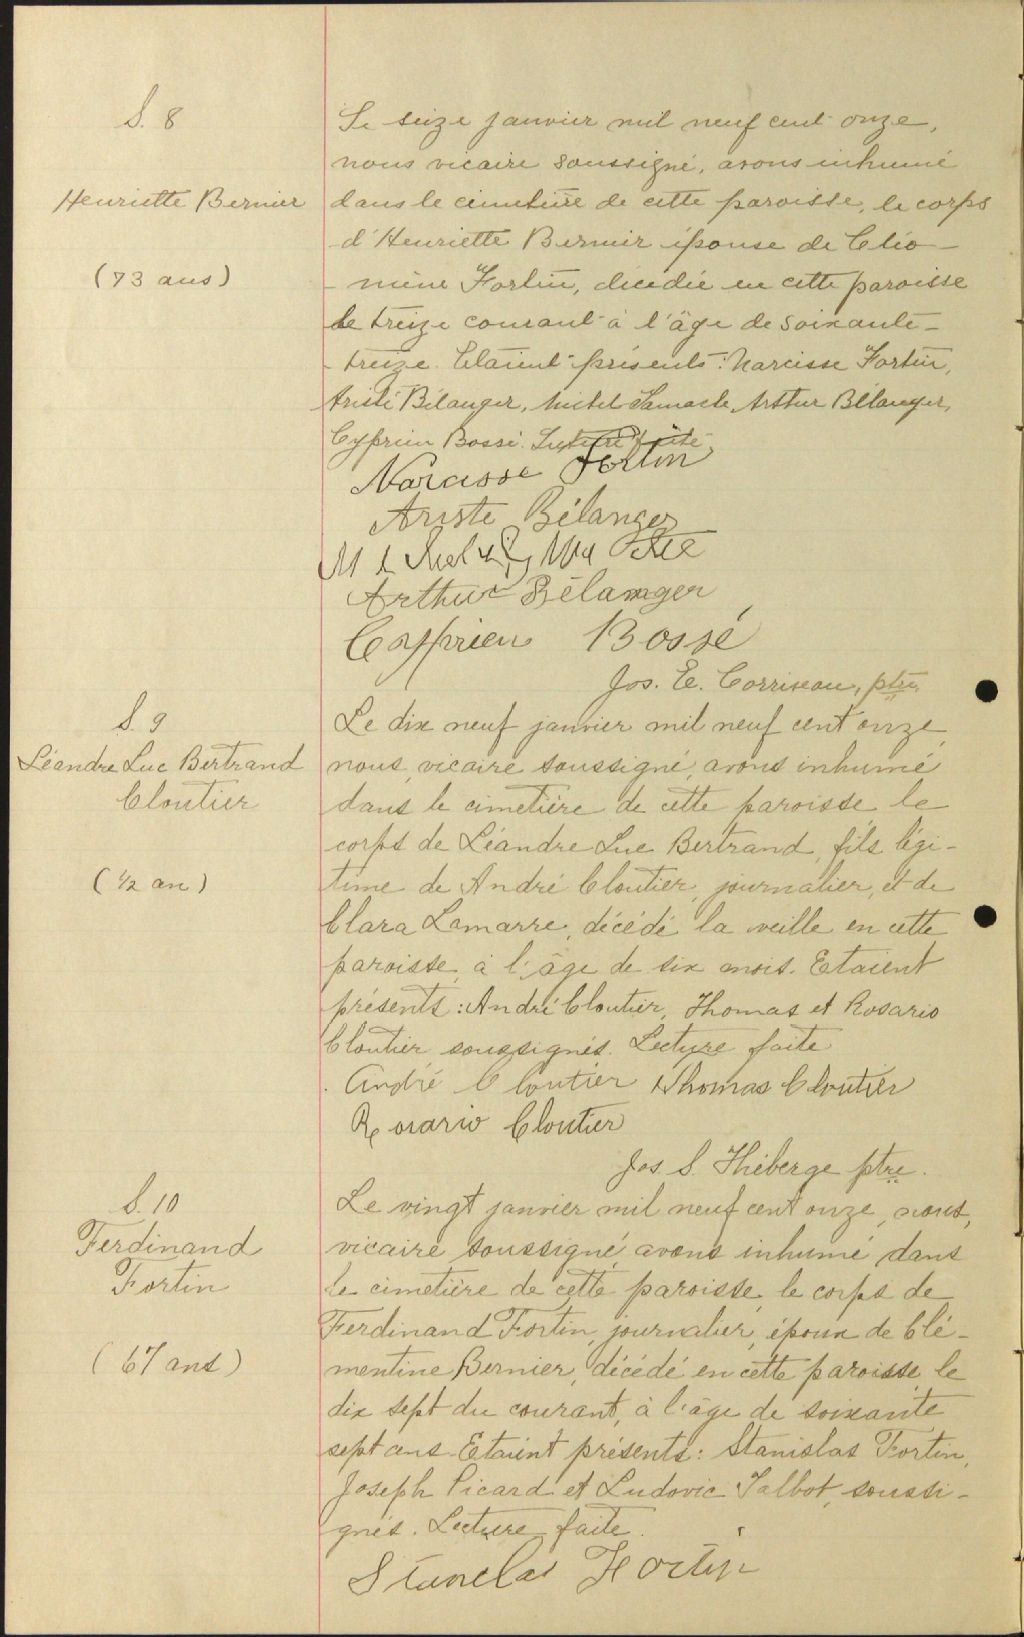 S. 8
Henriette Bernier
(73 ans)
Le seize janvier mil neuf cent onze,
nous vicaire soussigné, avons inhumé
dans le cimetière de cette paroisse, le corps
d'Henriette Bernier épouse de Cléo-
mène Fortin, décédée en cette paroisse
le treize courant à l'âge de soixante-
treize. Etaient présents: Narcisse Fortin,
Aristé Bélanger, Arthur Bélanger,
Cyprien Bossé. Lecture faite
Narcisse Fortin
Ariste Bélanger
Arthur Bélanger
Cyprien Bossé
Jos. E. Corriveau, ptre
S. 9
Léandre Luc Bertrand
Cloutier
(1/2 an)
Le dix neuf janvier mil neuf cent onze,
nous, vicaire soussigné, avons inhumé
dans le cimetière de cette paroisse le
corps de Léandre Luc Bertrand, fils légi-
time de André Cloutier, journalier, et de
Clara Lamarre, décédé la veille en cette
paroisse, à l'âge de six mois. Etaient
présents: André Cloutier, Thomas et Rosario
Cloutier soussignés. Lecture faite
André Cloutier Thomas Cloutier
Rosario Cloutier
Jos. S. Théberge ptre.
S. 10
Ferdinand
Fortin
(67 ans)
Le vingt janvier mil neuf cent onze, nous,
vicaire soussigné, avons inhumé dans
le cimetière de cette paroisse, le corps de
Ferdinand Fortin, journalier, époux de Clé-
mentine Bernier, décédé en cette paroisse, le
dix sept du courant, à l'âge de soixante
sept ans. Etaient présents: Stanislas Fortin,
Joseph Picard et Ludovic Talbot, soussi-
gnés. Lecture faite.
Stanclas Fortin